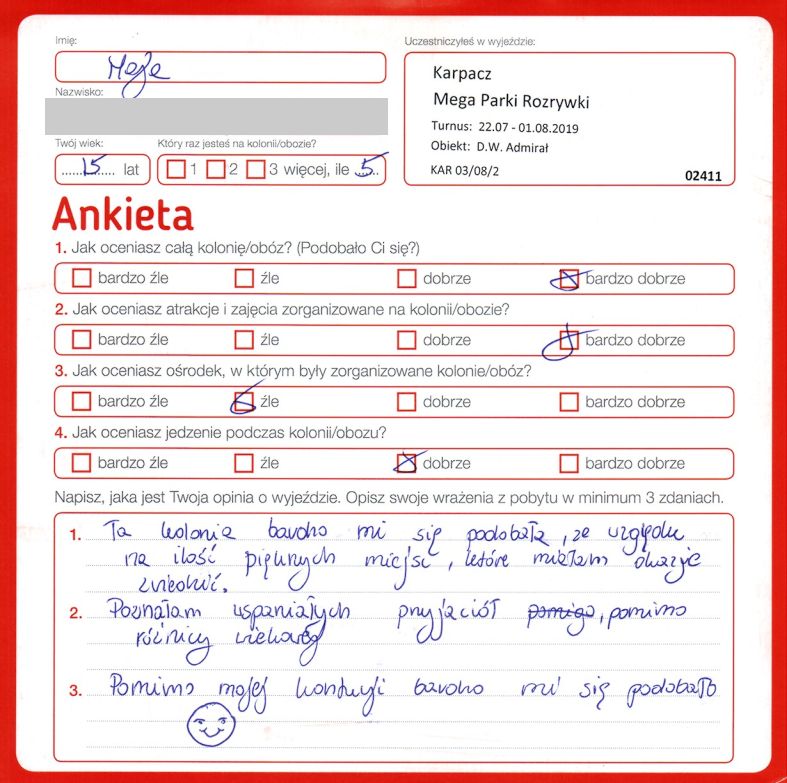 Imię:
Uczestniczyłeś w wyjeździe:
Maja
Karpacz
Mega Parki Rozrywki
Nazwisko:
Turnus: 22.07 - 01.08.2019
Obiekt: D.W. Admirał
KAR 03/08/2
02411
Twój wiek:
Który raz jesteś na kolonii/obozie?
15 lat
1 2 3 więcej, ile 5
Ankieta
1. Jak oceniasz całą kolonię/obóz? (Podobało Ci się?)
bardzo źle źle dobrze bardzo dobrze
2. Jak oceniasz atrakcje i zajęcia zorganizowane na kolonii/obozie?
bardzo źle źle dobrze bardzo dobrze
3. Jak oceniasz ośrodek, w którym były zorganizowane kolonie/obóz?
bardzo źle źle dobrze bardzo dobrze
4. Jak oceniasz jedzenie podczas kolonii/obozu?
bardzo źle źle dobrze bardzo dobrze
Napisz, jaka jest Twoja opinia o wyjeździe. Opisz swoje wrażenia z pobytu w minimum 3 zdaniach.
1. Ta kolonia bardzo mi się podobała, ze względu
na ilość pięknych miejsc, które miałam okazję
zwiedzić.
2. Poznałam wspaniałych przyjaciół pomigo, pomimo
różnicy wiekowej
3. Pomimo mojej kontuzji bardzo mi się podobało